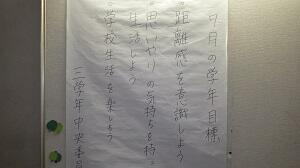 9月の学年目標
・距離感を意識しよう
・思いやりの気持ちを持っ
生活しよう
・学校生活を楽しもう
三学年中央委員